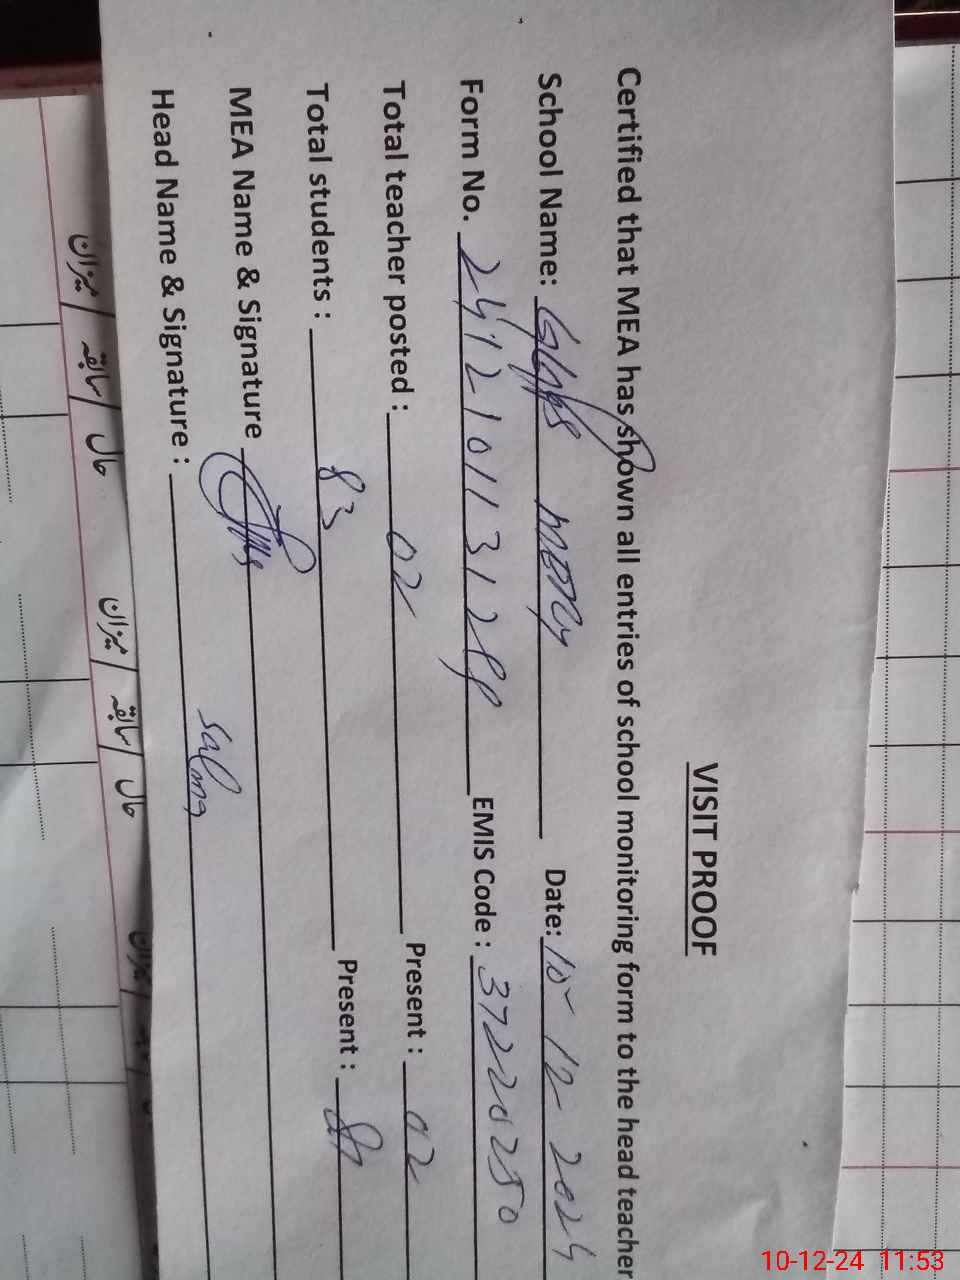 VISIT PROOF
Certified that MEA has shown all entries of school monitoring form to the head teacher
School Name: Date: 10-12-2024
Form No. EMIS Code : 37220250
Total teacher posted : 02 Present : 02
Total students : 83 Present :
MEA Name & Signature
Head Name & Signature : Salma
میزان / سابقہ / حال
میزان / سابقہ / حال
میزان
10-12-24 11:53